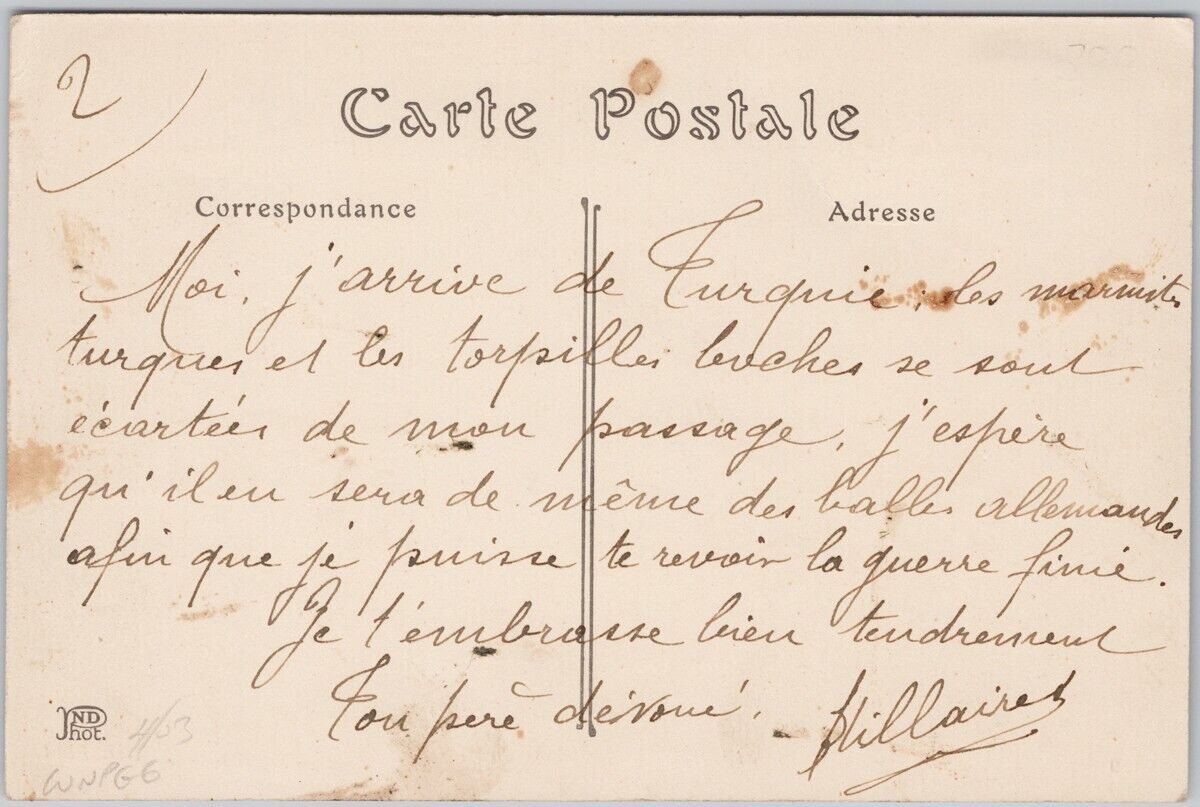 2)
Carte Postale
Correspondance
Adresse
Moi, j'arrive de Turquie, les marmites
turques et les torpilles boches se sont
écartées de mon passage, j'espère
qu'il en sera de même des balles allemandes
afin que je puisse te revoir la guerre finie.
Je t'embrasse bien tendrement
Ton père dévoué.
Hillairet
ND
Phot.
4/03
WNPG6